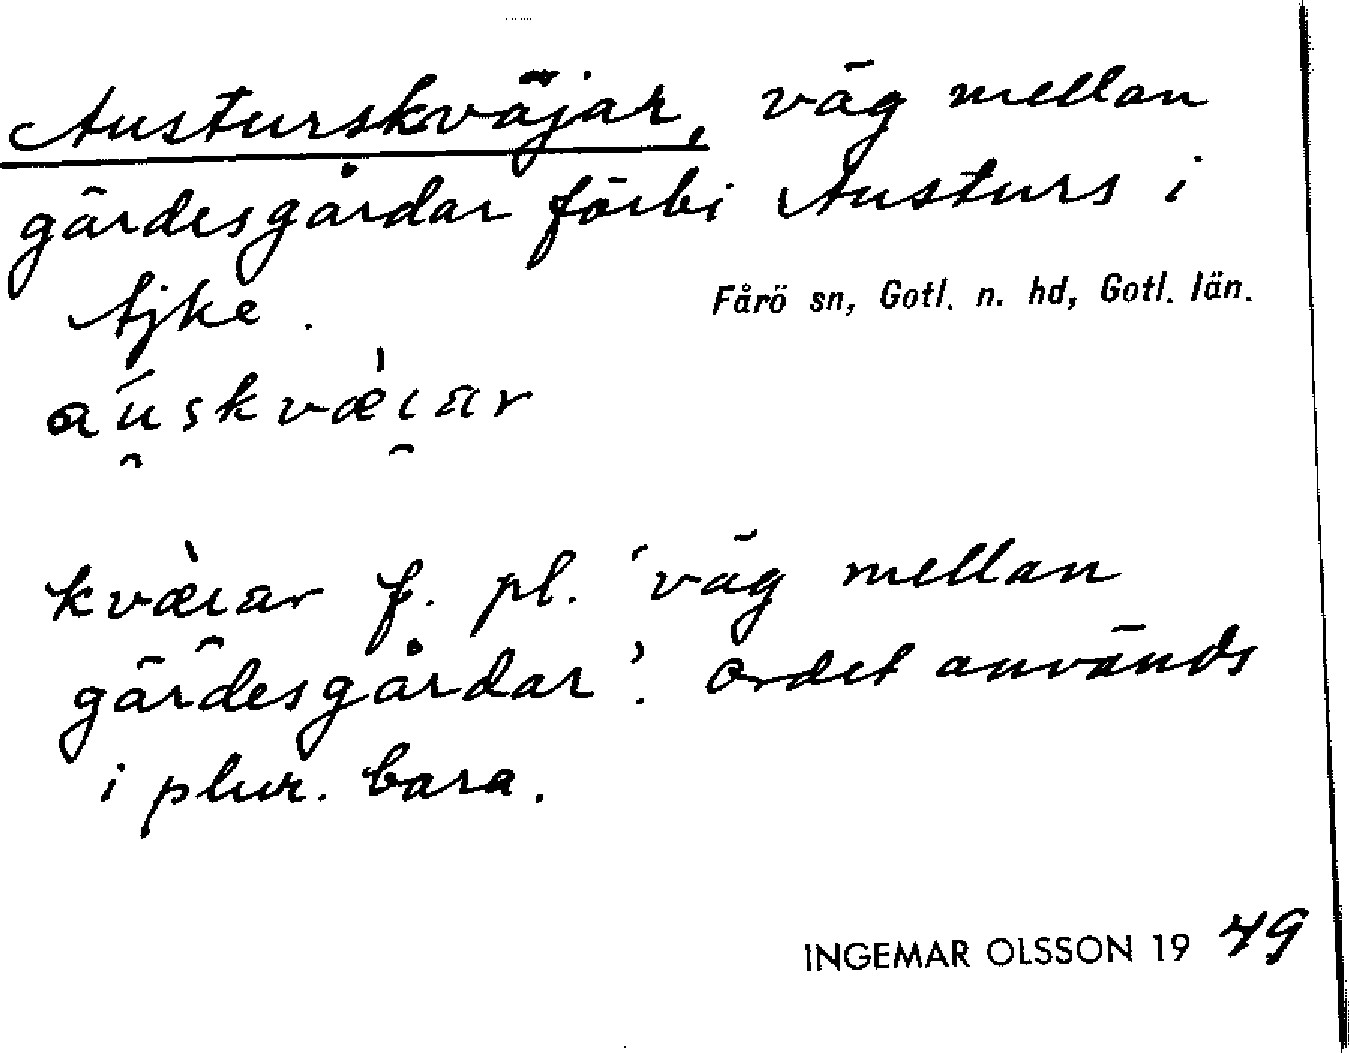 Austurskväjar, väg mellan
gärdesgårdar förbi Austurs i
Ajke.
Fårö sn, Gotl. n. hd, Gotl. län.
kvæ̀ıar f. pl. 'väg mellan
gärdesgårdar'. Ordet används
i plur. bara.
INGEMAR OLSSON 19 49